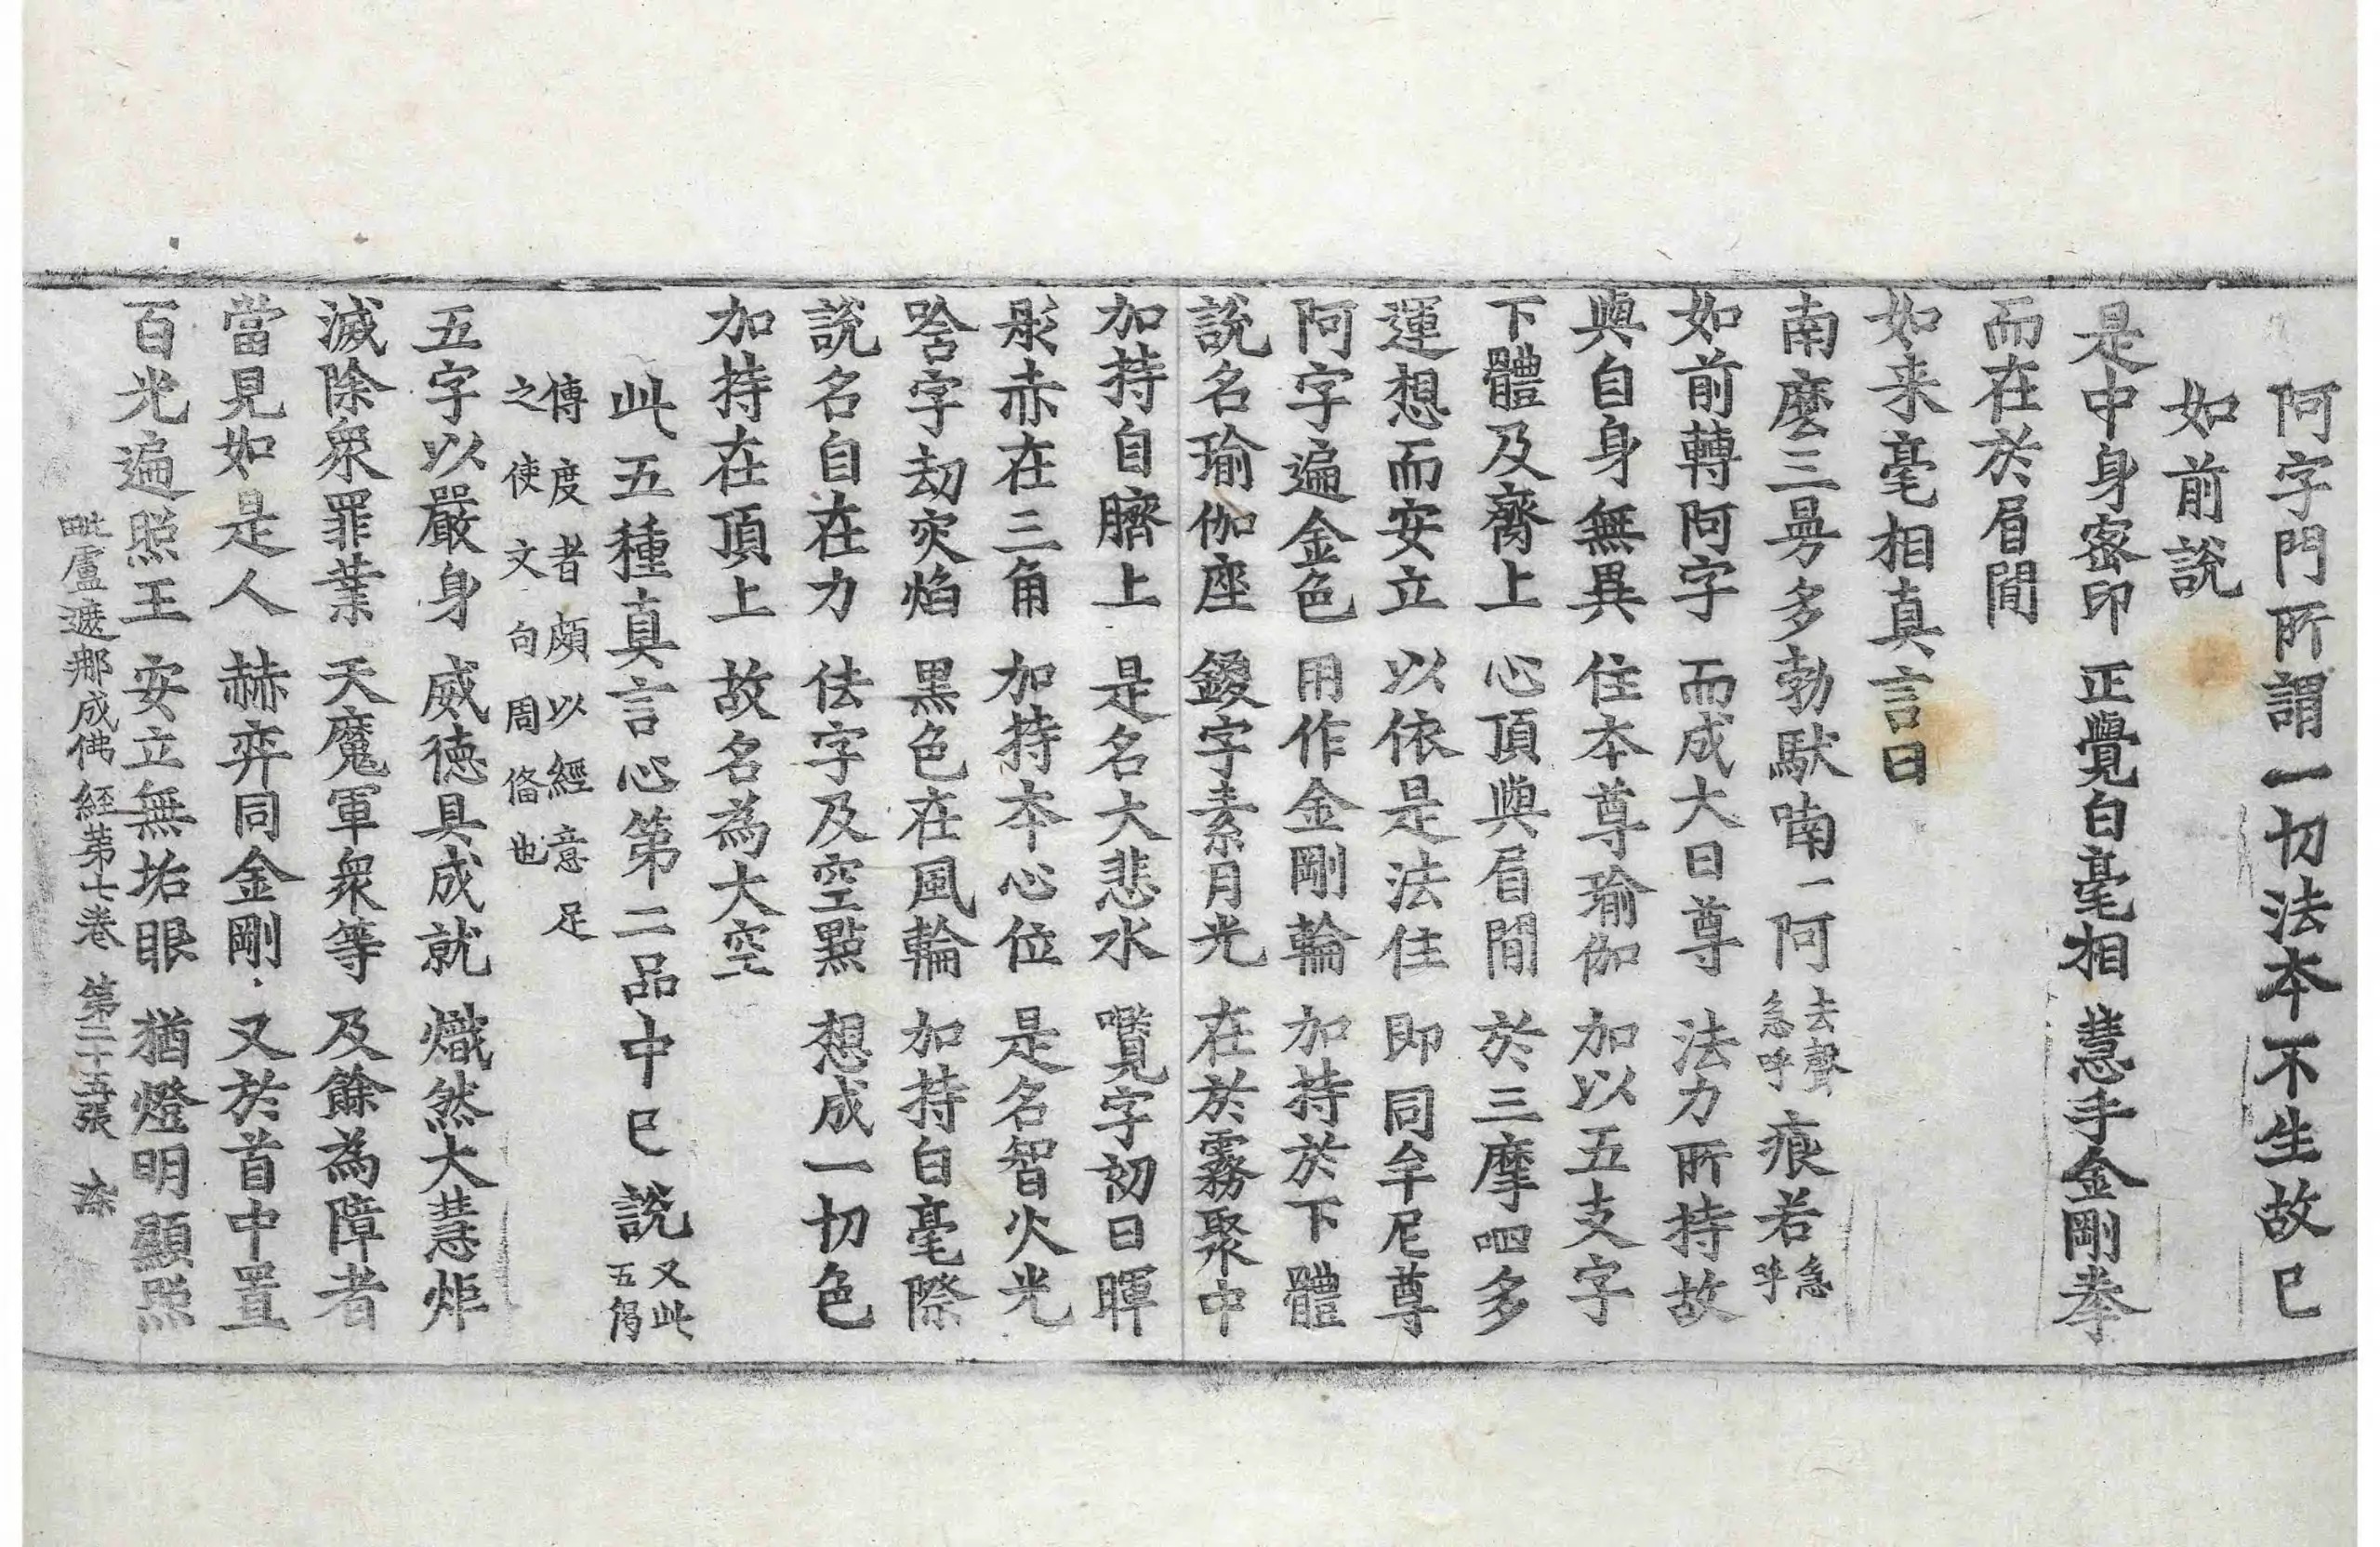 阿字門所謂一切法本不生故已
如前說
是中身密印 正覺白毫相 慧手金剛拳
而在於眉間
如来毫相真言曰
南麼三曼多勃馱喃一阿去聲急呼痕若急呼
如前轉阿字 而成大日尊 法力所持故
與自身無異 住本尊瑜伽 加以五支字
下體及齎上 心頂與眉間 於三摩呬多
運想而安立 以依是法住 即同牟尼尊
阿字遍金色 用作金剛輪 加持於下體
說名瑜伽座 鑁字素月光 在於霧聚中
加持自臍上 是名大悲水 㘕字初日暉
彤赤在三角 加持本心位 是名智火光
唅字劫灾焰 黒色在風輪 加持白毫際
說名自在力 佉字及空點 想成一切色
加持在頂上 故名為大空
此五種真言心第二品中已說又此五偈
傳度者頗以經意足
之使文句周俻也
五字以嚴身 威徳具成就 熾然大慧炬
滅除衆罪業 天魔軍衆等 及餘為障者
當見如是人 赫弈同金剛 又於首中置
百光遍照王 安立無垢眼 猶燈明顯照
毗盧遮那成佛經第七卷 第二十五張 染